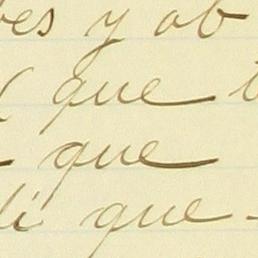 bes y ob
que
que
di que